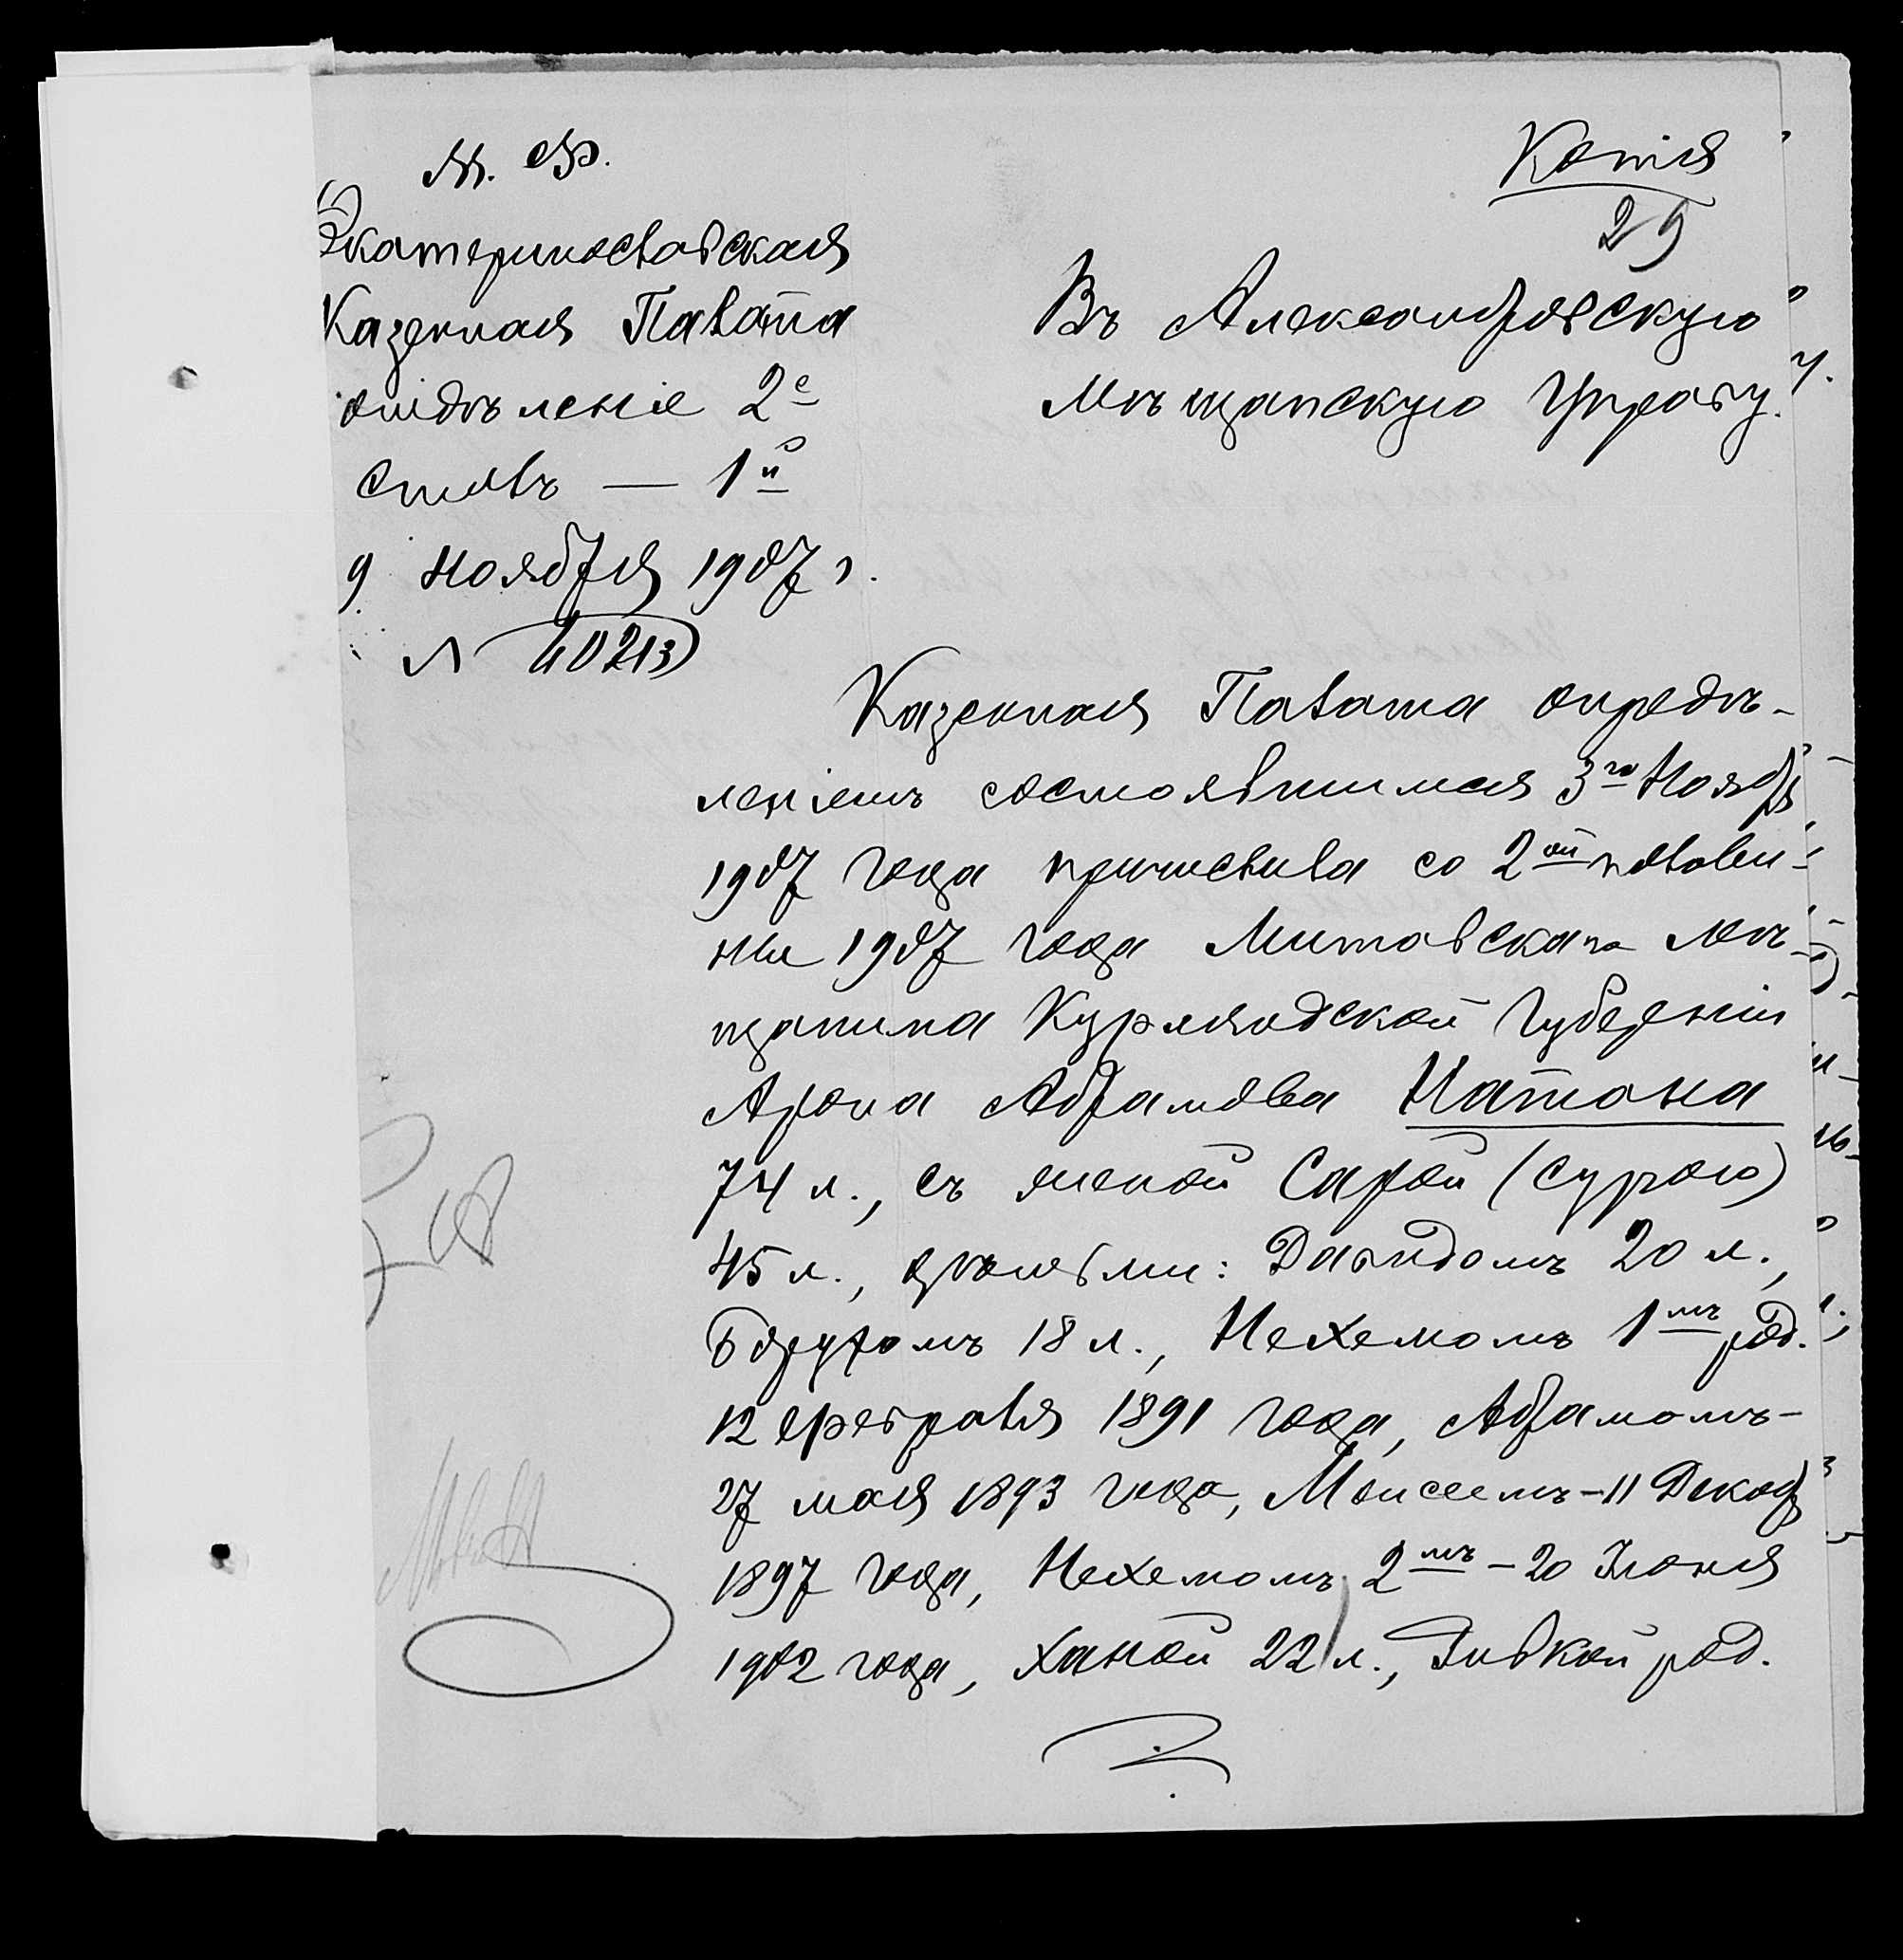 М. Ф.
Копія
29
Екатеринославская
Казенная Палата
отдѣленіе 2е
столъ — 1й
9 ноября 1907 г.
№ 40213
Въ Александровскую
Мѣщанскую Управу.
Казенная Палата опредѣ-
леніемъ состоявшимся 3го Ноябр
1907 года причислила со 2ой полови-
ны 1907 года Митовскаго мѣ-
щанина Курляндской губерніи
Арона Абрамова Натана
74 л., съ женой Сарой (Сурою)
45 л., дѣтьми: Давидомъ 20 л.,
Борухомъ 18 л., Нехемомъ 1мъ род.
12 февраля 1891 года, Абрамомъ-
27 мая 1893 года, Моисеемъ-11 Декаб
1897 года, Нехемомъ 2мъ - 20 Іюня
1902 года, Ханой 22 л., Ривкой род.